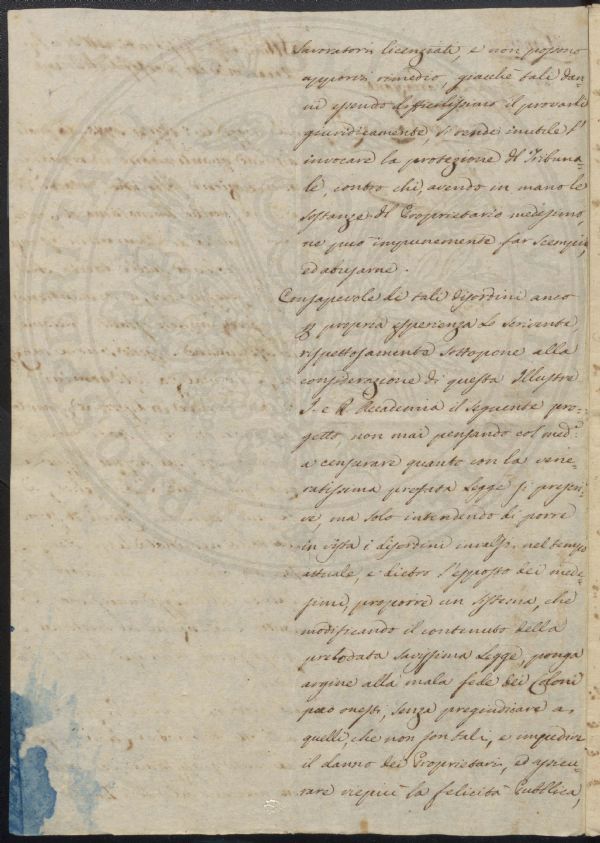 Lavoratori licenziati, e non possono
apporvi rimedio, giacchè tali dan-
ni essendo difficilissimo il provarli
giuridicamente, si rende inutile l'
invocare la protezione del Tribuna-
le, contro chi, avendo in mano le
sostanze del Proprietario medesimo,
ne può impunemente far scempio,
ed abusarne.
Consapevole di tali disordini anco
per propria esperienza Lo Scrivente,
rispettosamente sottopone alla
considerazione di questa Illustre
I. e R. Accademia il seguente pro-
getto, non mai pensando col med.º
a censurare quanto con la vene-
ratissima prefata Legge si prescri-
ve, ma solo intendendo di porre
in vista i disordini invalsi nel tempo
attuale, e dietro l'esposto dei mede-
simi, proporre un sistema, che
modificando il contenuto della
prelodata savissima Legge, ponga
argine alla mala fede dei Coloni
poco onesti, senza pregiudicare a
quelli, che non son tali, e impedire
il danno dei Proprietarii, ed assicu-
rare viepiù la felicità Pubblica,